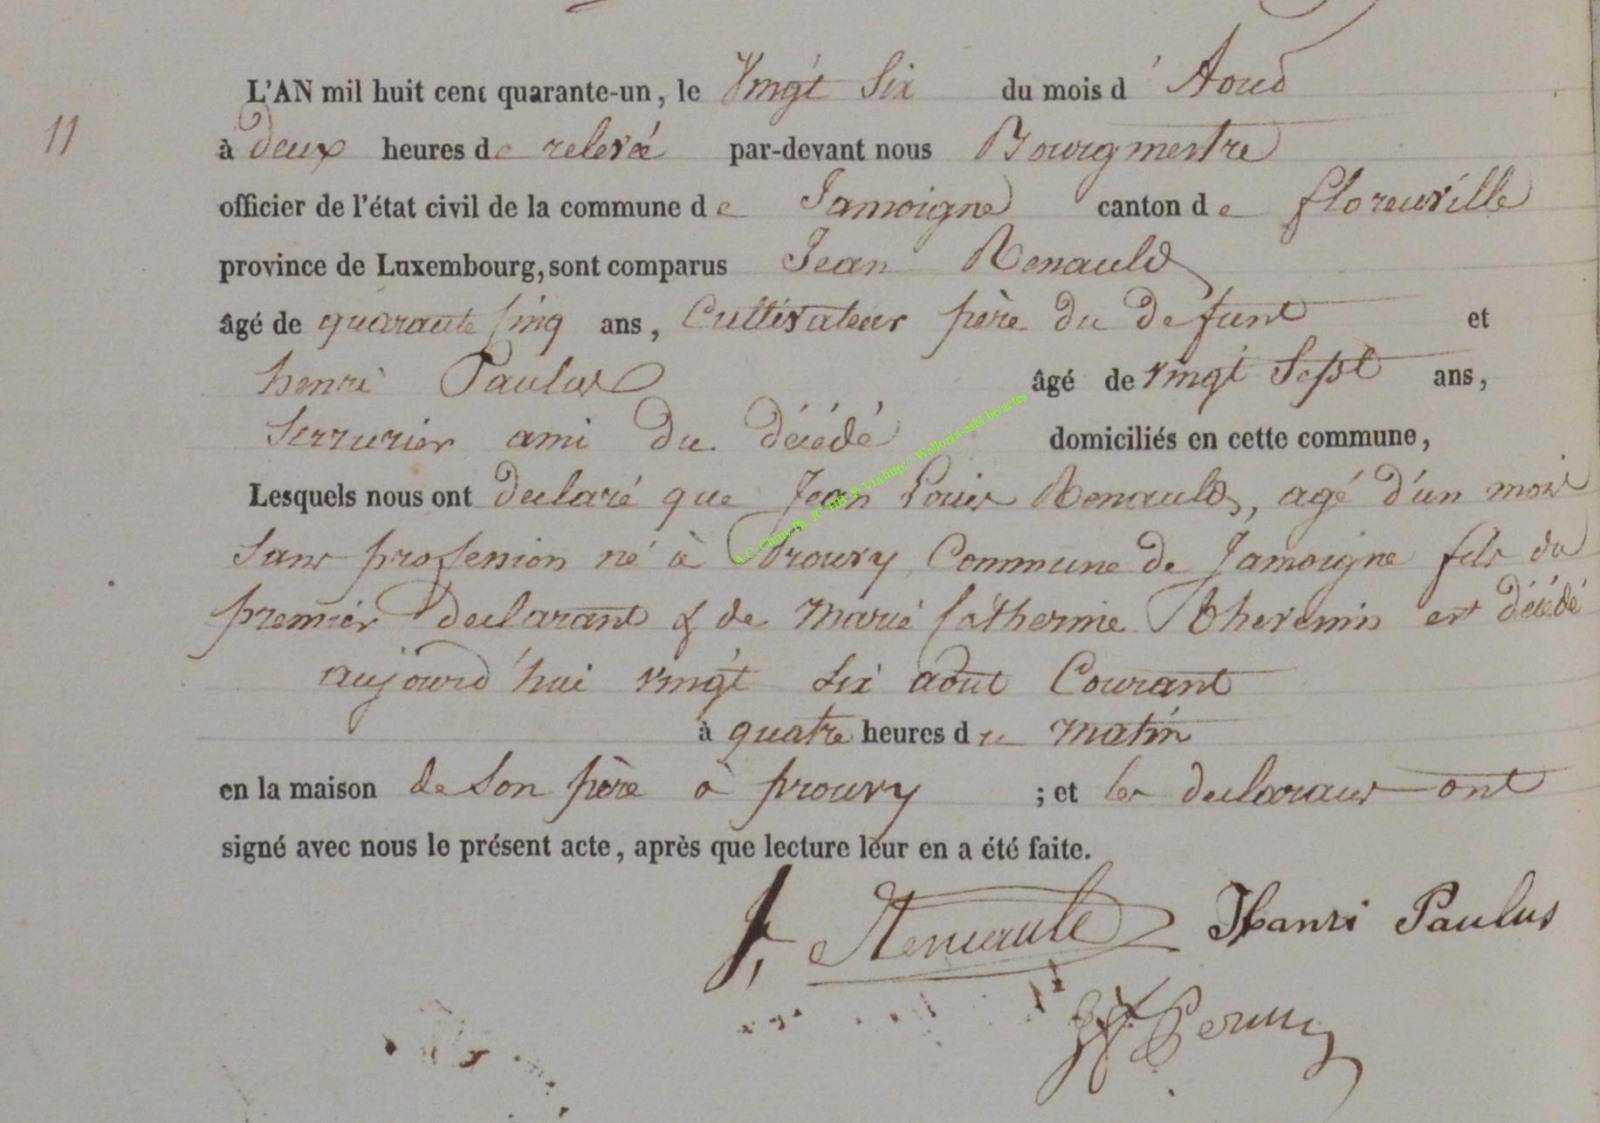 L'AN mil huit cent quarante-un, le Vingt Six du mois d'Aout
11
à deux heures de relevée par-devant nous Bourgmestre
officier de l'état civil de la commune de Jamoigne canton de florenville
province de Luxembourg, sont comparus Jean Renauld
âgé de quarante Cinq ans, Cultivateur père du defunt et
henri Paulus âgé de vingt Sept ans,
Serrurier ami du décédé domiciliés en cette commune,
Lesquels nous ont declaré que Jean Louis Renauld, agé d'un mois
Sans profession né à Prouvy Commune de Jamoigne fils du
premier declarant & de Marie Catherine Theremin est décédé
aujourd'hui vingt six aout Courant
à quatre heures du matin
en la maison de Son père à prouvy ; et les declarans ont
signé avec nous le présent acte, après que lecture leur en a été faite.
J, Renauld Hanri Paulus